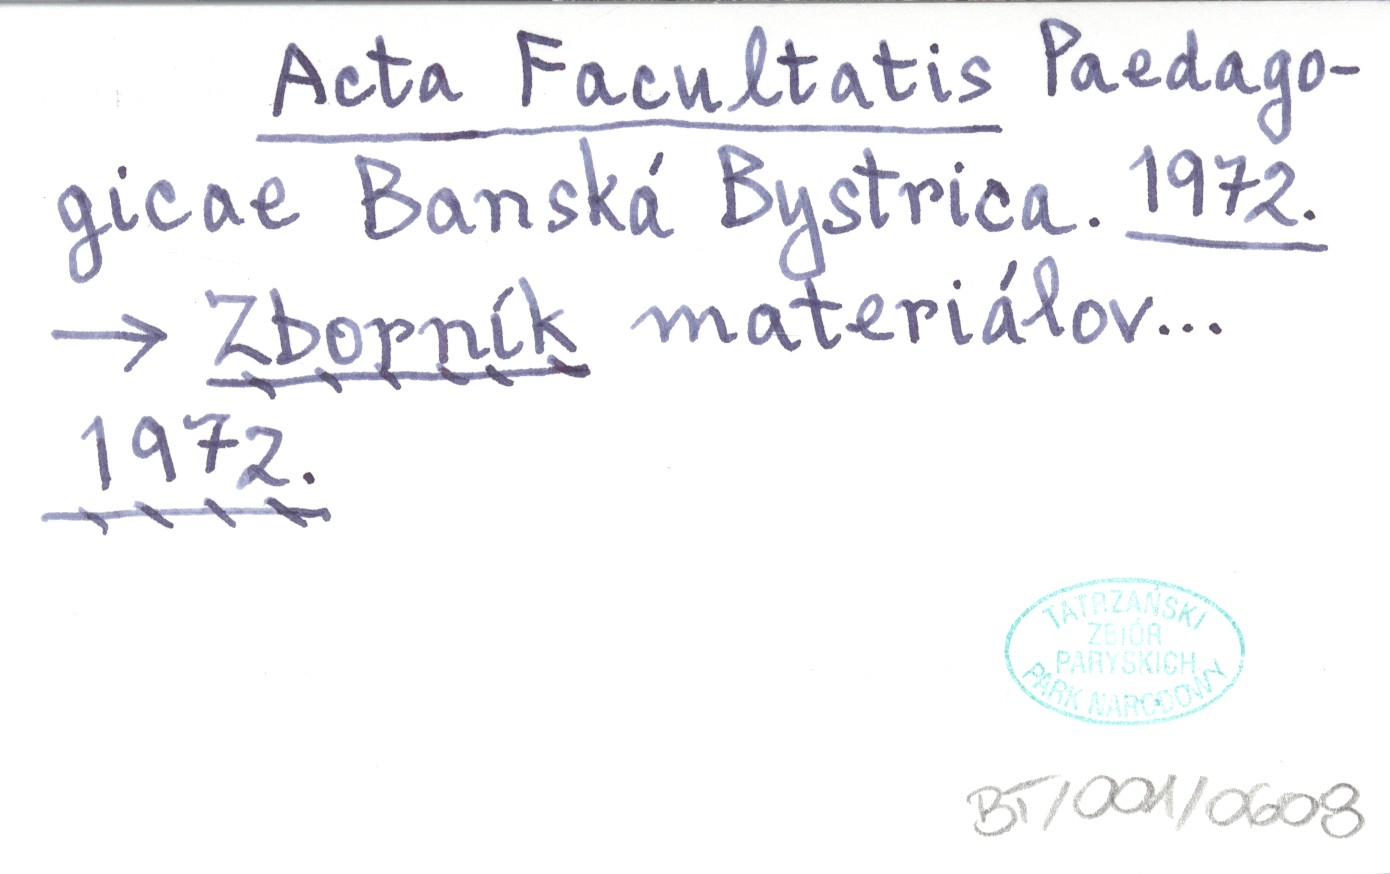 Acta Facultatis Paedago-
gicae Banská Bystrica. 1972.
→ Zborník materiálov...
1972.
TATRZAŃSKI
ZBIÓR
PARYSKICH
PARK NARODOWY
BT/001/0608